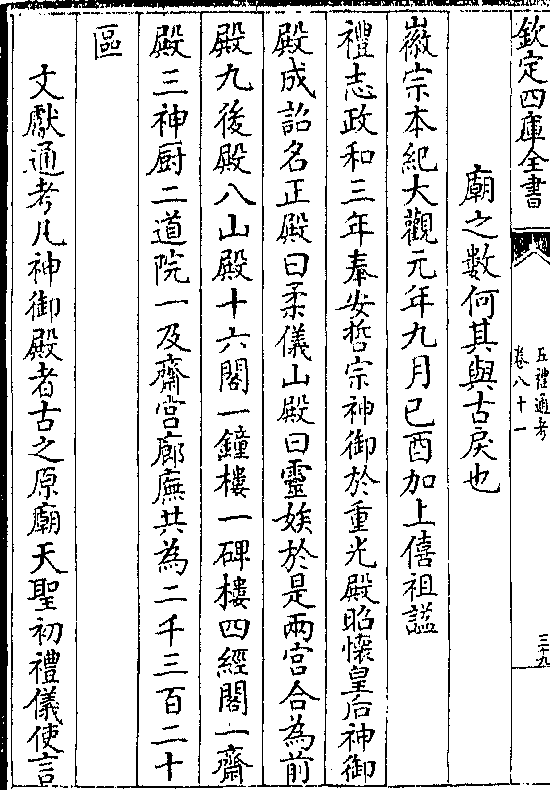 欽定四庫全書
五禮通考
卷八十一
三十九
廟之數何其與古戾也
徽宗本紀大觀元年九月己酉加上僖祖諡
禮志政和三年奉安哲宗神御於重光殿昭懷皇后神御
殿成詔名正殿曰柔儀山殿曰靈娭於是兩宮合為前
殿九後殿八山殿十六閣一鐘樓一碑樓四經閣一齋
殿三神厨二道院一及齋宮廊廡共為二千三百二十
區
文獻通考凡神御殿者古之原廟天聖初禮儀使言